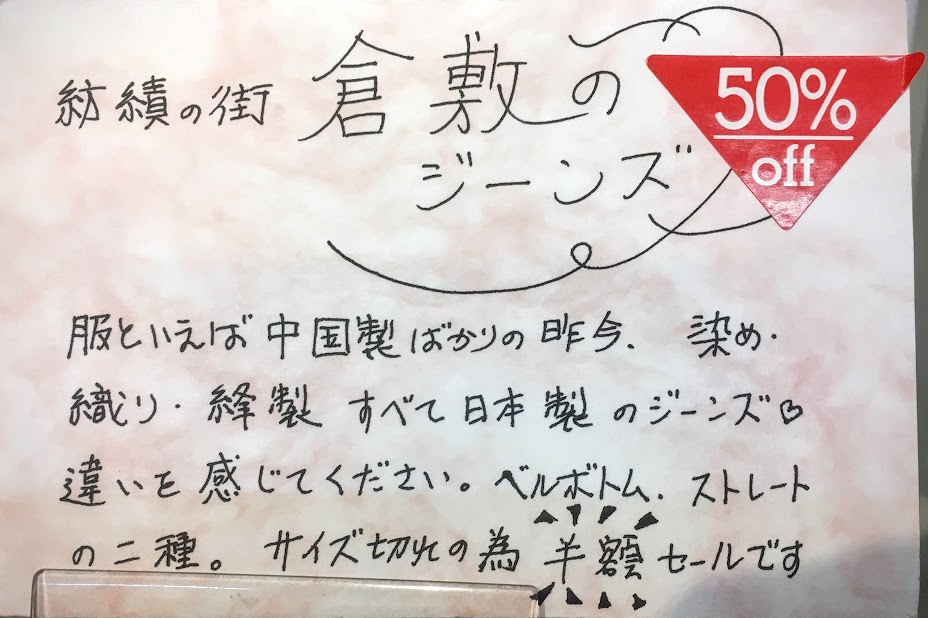 紡績の街 倉敷の
ジーンズ
50%
off
服といえば中国製ばかりの昨今、染め・
織り・縫製 すべて日本製のジーンズ♡
違いを感じてください。ベルボトム、ストレート
の二種。サイズ切れの為 半額セールです